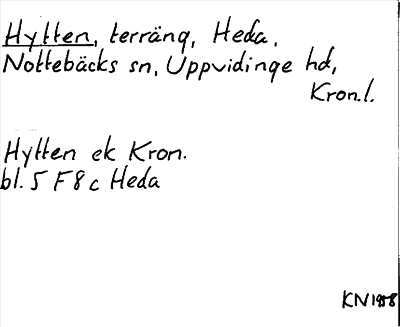 Hytten, terräng, Heda,
Nottebäcks sn, Uppvidinge hd,
Kron.l.
Hytten ek Kron.
bl. 5 F 8 c Heda
KN 1988